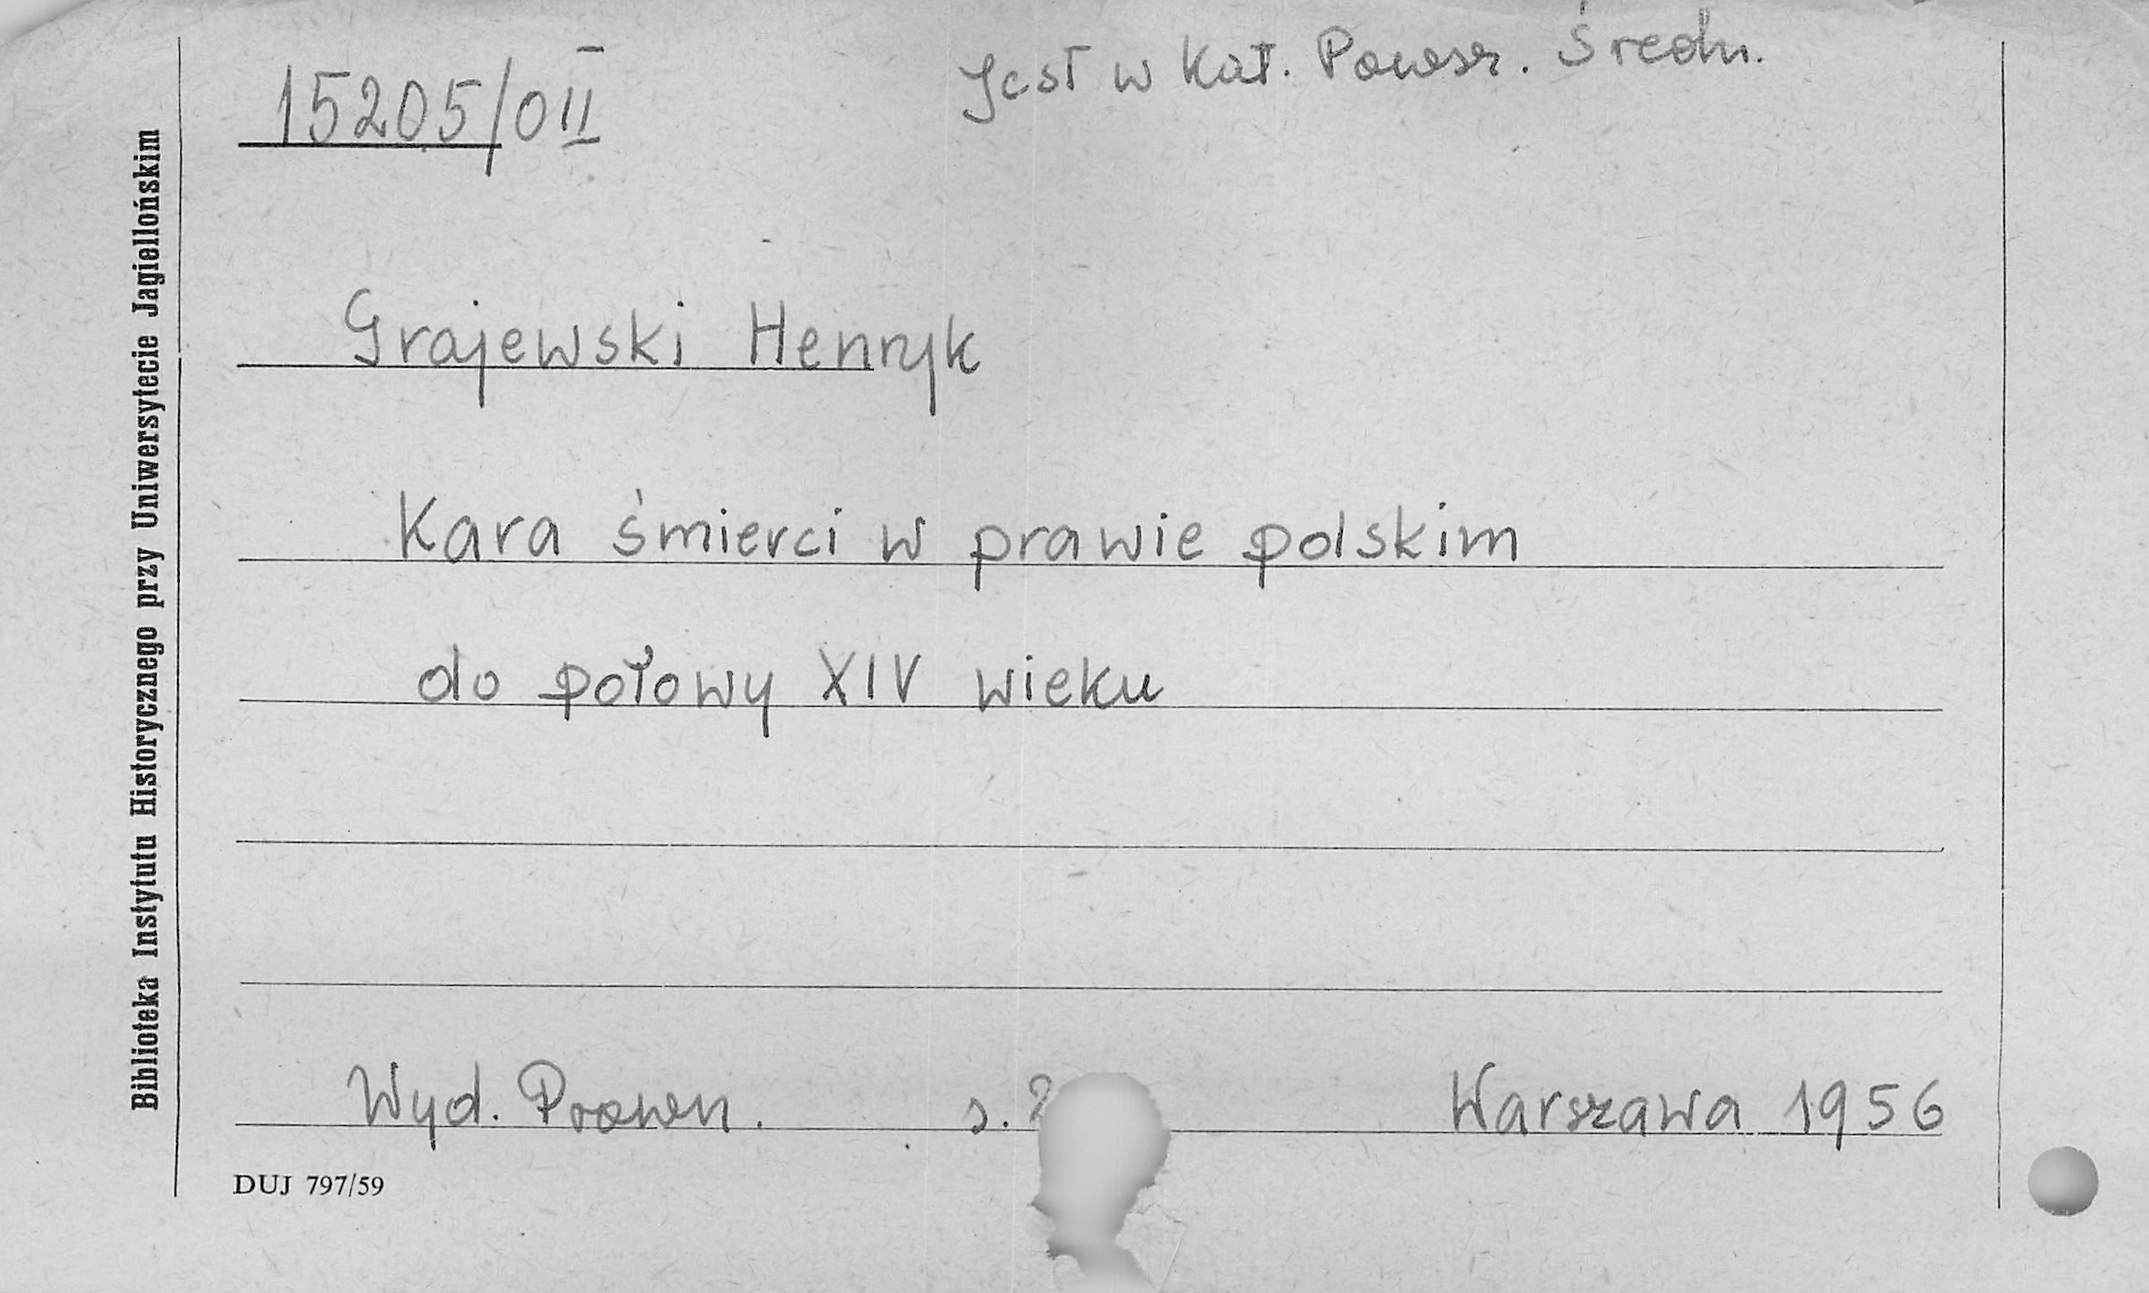 15205/0II
Jest w Kat. Powsz. Średn.
Grajewski Henryk
Kara śmierci w prawie polskim
do połowy XIV wieku
Wyd. Prawn. s. Warszawa 1956
DUJ 797/59
Biblioteka Instytutu Historycznego przy Uniwersytecie Jagiellońskim